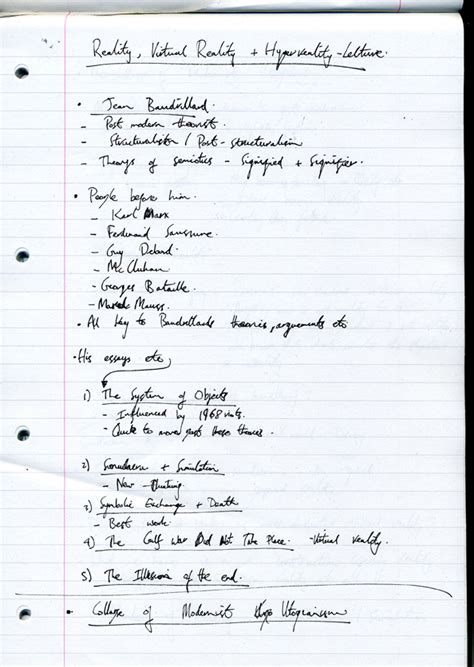 Reality, Virtual Reality + Hyperreality - Lecture.
• Jean Baudrillard.
- Post modern theorist
- Structuralism / Post-structuralism
- Theorys of semiotics - Signified + Signifier.
• People before him.
- Karl Marx
- Ferdinand Saussure
- Guy Debord.
- McCluhan
- Georges Bataille.
- Mauss.
• All key to Baudrillards theories, arguments etc
• His essays etc
1) The System of Objects
- Influenced by 1968 riots.
- Quick to move past these theories.
2) Simulacra + Simulation
- New thinking
3) Symbolic Exchange + Death
- Best work.
4) The Gulf War Did Not Take Place. - Virtual reality.
5) The Illusion of the end.
• Collapse of Modernist Utopianism